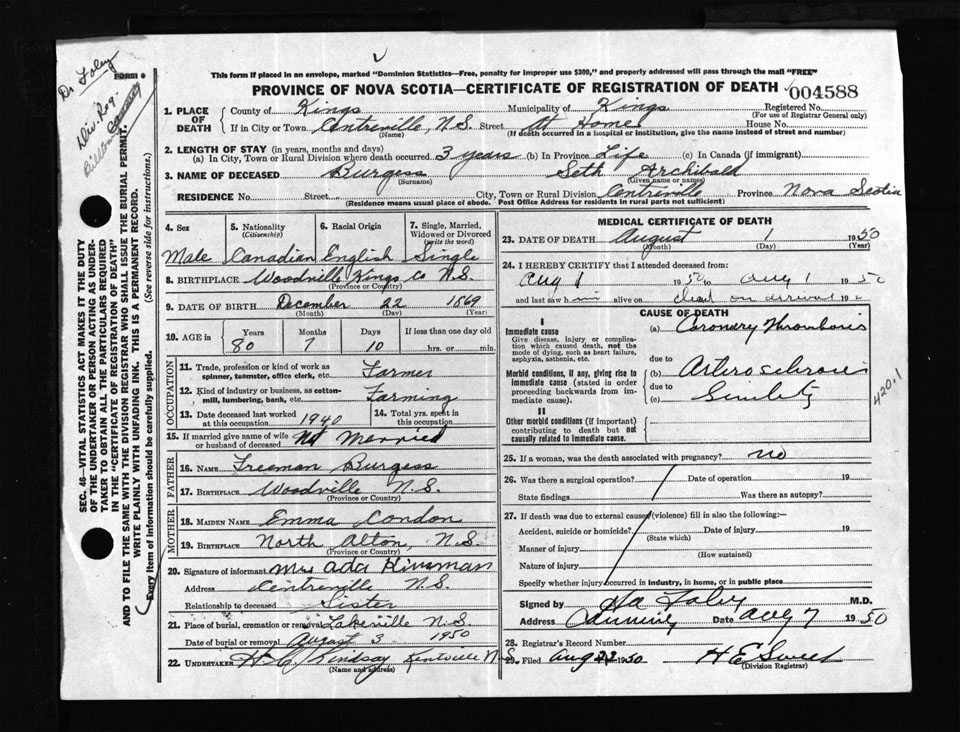 Dr Foley
Div. Reg.
FORM 6
SEC. 46—VITAL STATISTICS ACT MAKES IT THE DUTY
OF THE UNDERTAKER OR PERSON ACTING AS UNDER-
TAKER TO OBTAIN ALL THE PARTICULARS REQUIRED
IN THE "CERTIFICATE OF REGISTRATION OF DEATH"
AND TO FILE THE SAME WITH THE DIVISION REGISTRAR WHO SHALL ISSUE THE BURIAL PERMIT.
WRITE PLAINLY WITH UNFADING INK. THIS IS A PERMANENT RECORD.
Every item of information should be carefully supplied. (See reverse side for instructions.)
This form if placed in an envelope, marked "Dominion Statistics—Free, penalty for improper use $300," and properly addressed will pass through the mail "FREE"
PROVINCE OF NOVA SCOTIA—CERTIFICATE OF REGISTRATION OF DEATH 004588
1. PLACE OF DEATH County of Kings Municipality of Kings Registered No.
(For use of Registrar General only)
If in City or Town Centreville, N.S. Street At Home House No.
(Name) (If death occurred in a hospital or institution, give the name instead of street and number)
2. LENGTH OF STAY (in years, months and days)
(a) In City, Town or Rural Division where death occurred 3 years (b) In Province Life (c) In Canada (if immigrant)
3. NAME OF DECEASED Burgess Seth Archibald
(Surname) (Given name or names)
RESIDENCE No. Street City, Town or Rural Division Centreville Province Nova Scotia
(Residence means usual place of abode. Post Office Address for residents in rural parts not sufficient)
4. Sex 5. Nationality (Citizenship) 6. Racial Origin 7. Single, Married, Widowed or Divorced (write the word)
Male Canadian English Single
8. BIRTHPLACE Woodville Kings Co N.S.
(Province or Country)
9. DATE OF BIRTH December 22 1869
(Month) (Day) (Year)
10. AGE in Years Months Days If less than one day old
80 7 10 hrs. or min.
OCCUPATION
11. Trade, profession or kind of work as spinner, teamster, office clerk, etc. Farmer
12. Kind of industry or business, as cotton-mill, lumbering, bank, etc. Farming
13. Date deceased last worked at this occupation 1940 14. Total yrs. spent in this occupation
15. If married give name of wife or husband of deceased Not Married
FATHER
16. NAME Freeman Burgess
17. BIRTHPLACE Woodville N.S.
(Province or Country)
MOTHER
18. MAIDEN NAME Emma Condon
19. BIRTHPLACE North Alton, N.S.
(Province or Country)
20. Signature of informant Mrs Ada Kinsman
Address Centreville N.S.
Relationship to deceased Sister
21. Place of burial, cremation or removal Lakeville N.S.
Date of burial or removal August 3 1950
22. UNDERTAKER H.C. Lindsay Kentville N.S.
(Name and address)
MEDICAL CERTIFICATE OF DEATH
23. DATE OF DEATH August 1 1950
(Month) (Day) (Year)
24. I HEREBY CERTIFY that I attended deceased from:
Aug 1 1950 to Aug 1 1950
and last saw him alive on dead on arrival 19
CAUSE OF DEATH
I
Immediate cause
Give disease, injury or complication which caused death, not the mode of dying, such as heart failure, asphyxia, asthenia, etc.
(a) Coronary Thrombosis
due to
Morbid conditions, if any, giving rise to immediate cause (stated in order proceeding backwards from immediate cause).
(b) Arterosclerosis
due to
(c) Senility
420.1
II
Other morbid conditions (if important) contributing to death but not causally related to immediate cause.
25. If a woman, was the death associated with pregnancy? no
26. Was there a surgical operation? Date of operation 19
State findings Was there an autopsy?
27. If death was due to external causes (violence) fill in also the following:—
Accident, suicide or homicide? Date of injury 19
(State which)
Manner of injury
(How sustained)
Nature of injury
Specify whether injury occurred in industry, in home, or in public place
Signed by Foley M.D.
Address Canning Date Aug 7 1950
28. Registrar's Record Number
29. Filed Aug 22 1950 H E Sweet
(Division Registrar)